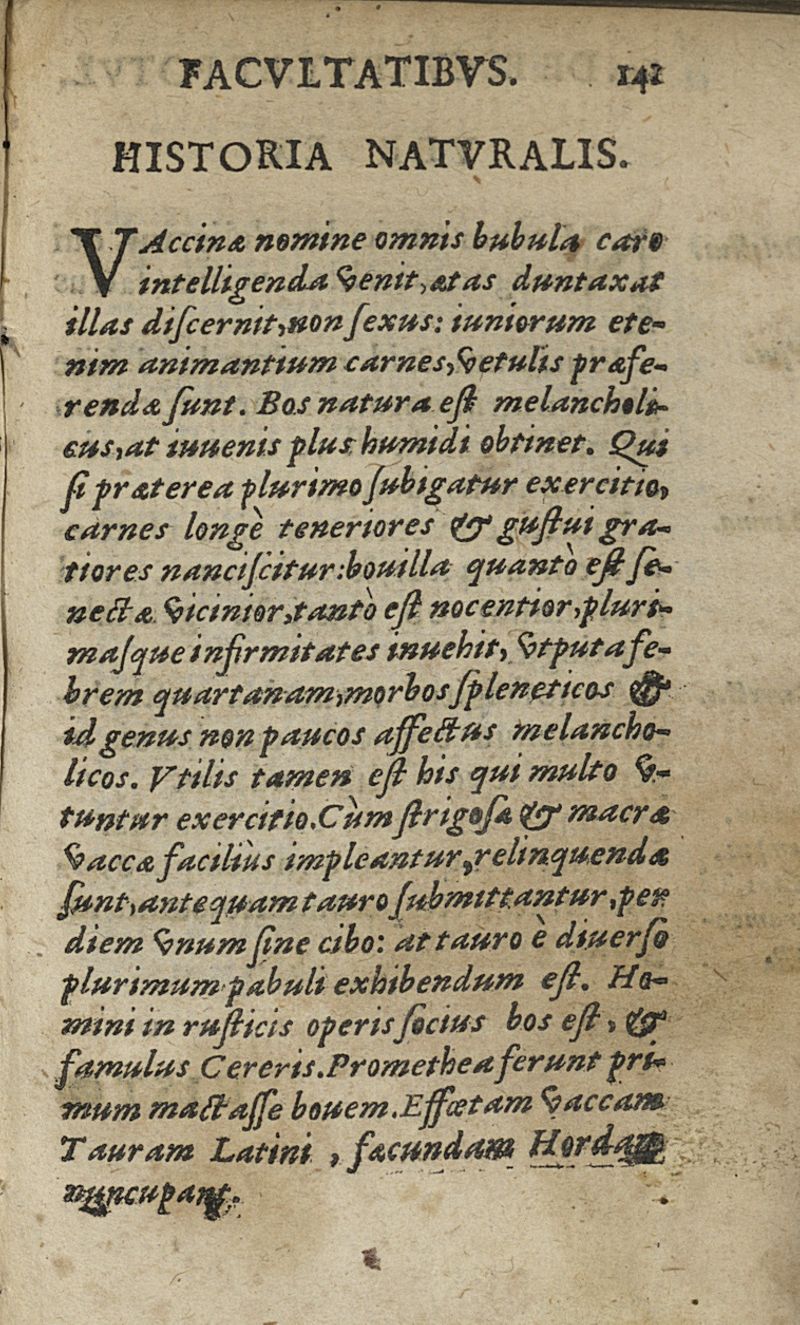 FACVLTATIBVS. 141
HISTORIA NATVRALIS.
VAccinæ nomine omnis bubula caro
intelligenda venit, ætas duntaxat
illas diſcernit, non ſexus: iuniorum ete-
nim animantium carnes, vetulis præfe-
rendæ ſunt. Bos natura eſt melancholi-
cus, at iuuenis plus humidi obtinet. Qui
ſi præterea plurimo ſubigatur exercitio,
carnes longè teneriores & guſtui gra-
tiores nanciſcitur: bouilla quantò eſt ſe-
nectæ vicinior, tantò eſt nocentior, pluri-
maſque infirmitates inuehit, vtputa fe-
brem quartanam, morbos ſpleneticos &
id genus non paucos affectus melancho-
licos. Vtilis tamen eſt his qui multo v-
tuntur exercitio. Cùm ſtrigoſæ & macræ
vaccæ faciliùs impleantur, relinquendæ
ſunt, antequam tauro ſubmittantur, per
diem vnum ſine cibo: at tauro è diuerſo
plurimum pabuli exhibendum eſt. Ho-
mini in ruſticis operis ſocius bos eſt, &
famulus Cereris. Promethea ferunt pri-
mum mactaſſe bouem. Effœtam vaccam
Tauram Latini, fæcundam Hordam
nuncupant.